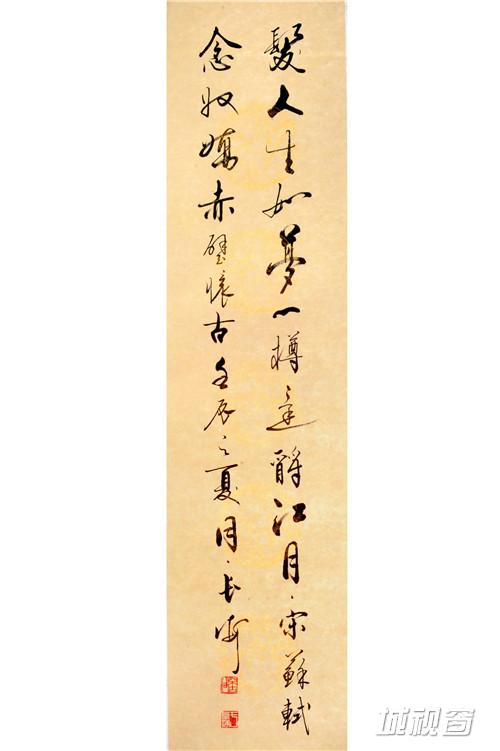 髮人生如夢一樽還酹江月宋蘇軾
念奴嬌赤壁懷古壬辰之夏月長
城视窗